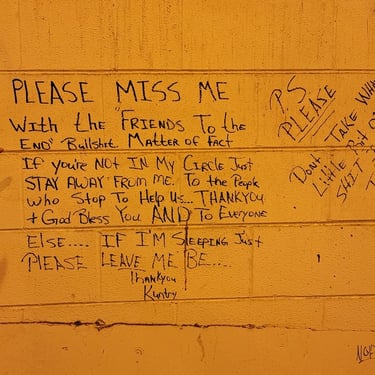 PLEASE MISS ME
With the "FRIENDS To the
END" Bullshit. Matter of fact
If you're NOT IN My CIRCLE Just
STAY AWAY FROM ME. To the People
who Stop To Help Us... THANKYOU
+ God Bless You AND To Everyone
Else.... IF I'M Sleeping Just
PLEASE LEAVE ME BE....
thankyou
Kuntry
P.S
PLEASE
Dont TAKE
Little
SHIT